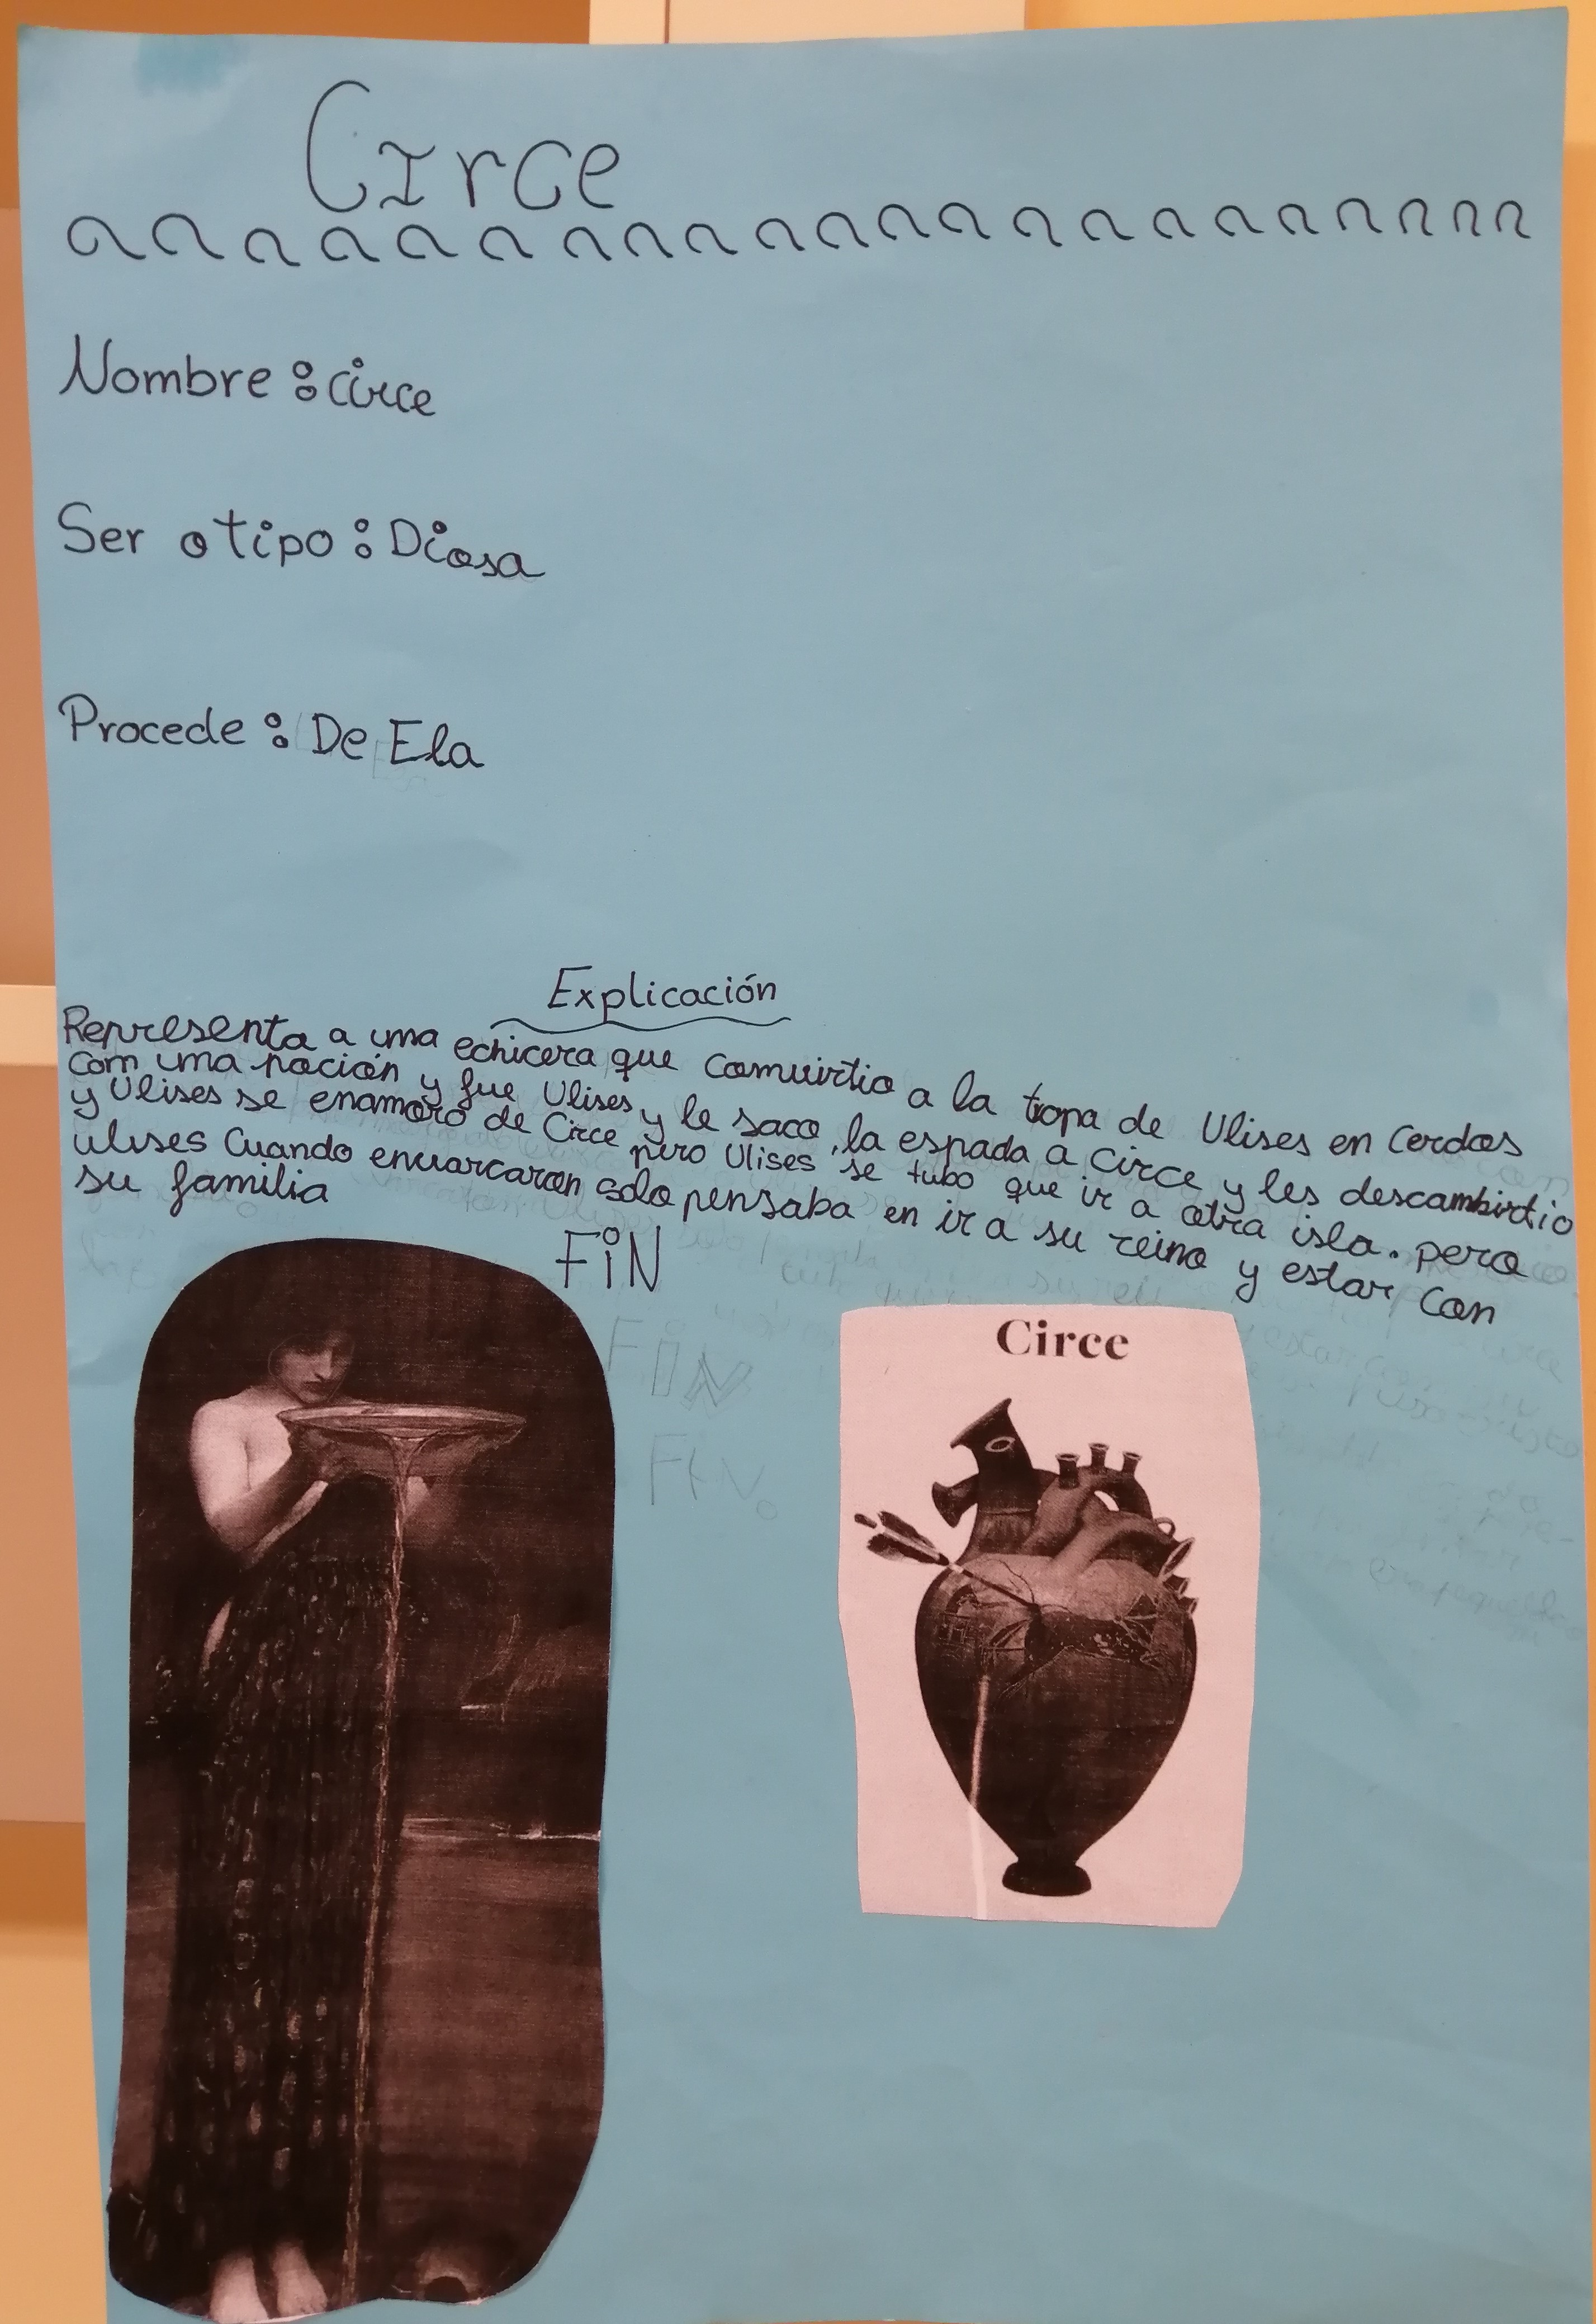 Circe
Nombre: circe
Ser o tipo: Diosa
Procede: De Ela
Explicación
Representa a una echicera que comvirtio a la tropa de Ulises en Cerdos
com una poción y fue Ulises y le saco la espada a Circe y les descambirtio
y Ulises se enamoro de Circe pero Ulises se tubo que ir a otra isla. pero
ulises Cuando envarcaron solo pensaba en ir a su reino y estar con
su familia
FiN
FiN
FiN.
Circe